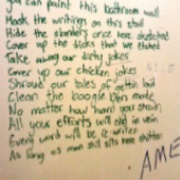 you can paint this bathroom wall
Mask the writings on this stall
Hide the slanders once here sketched
Cover up the dicks that we etched
Take away our dirty jokes
Cover up our chicken jokes
Shroud our tales of gettin laid
Clean the boogie
No matter how hard you strain
All your efforts will end in vein
Every word will be re-written
As long as man still sits here shitten
. AME